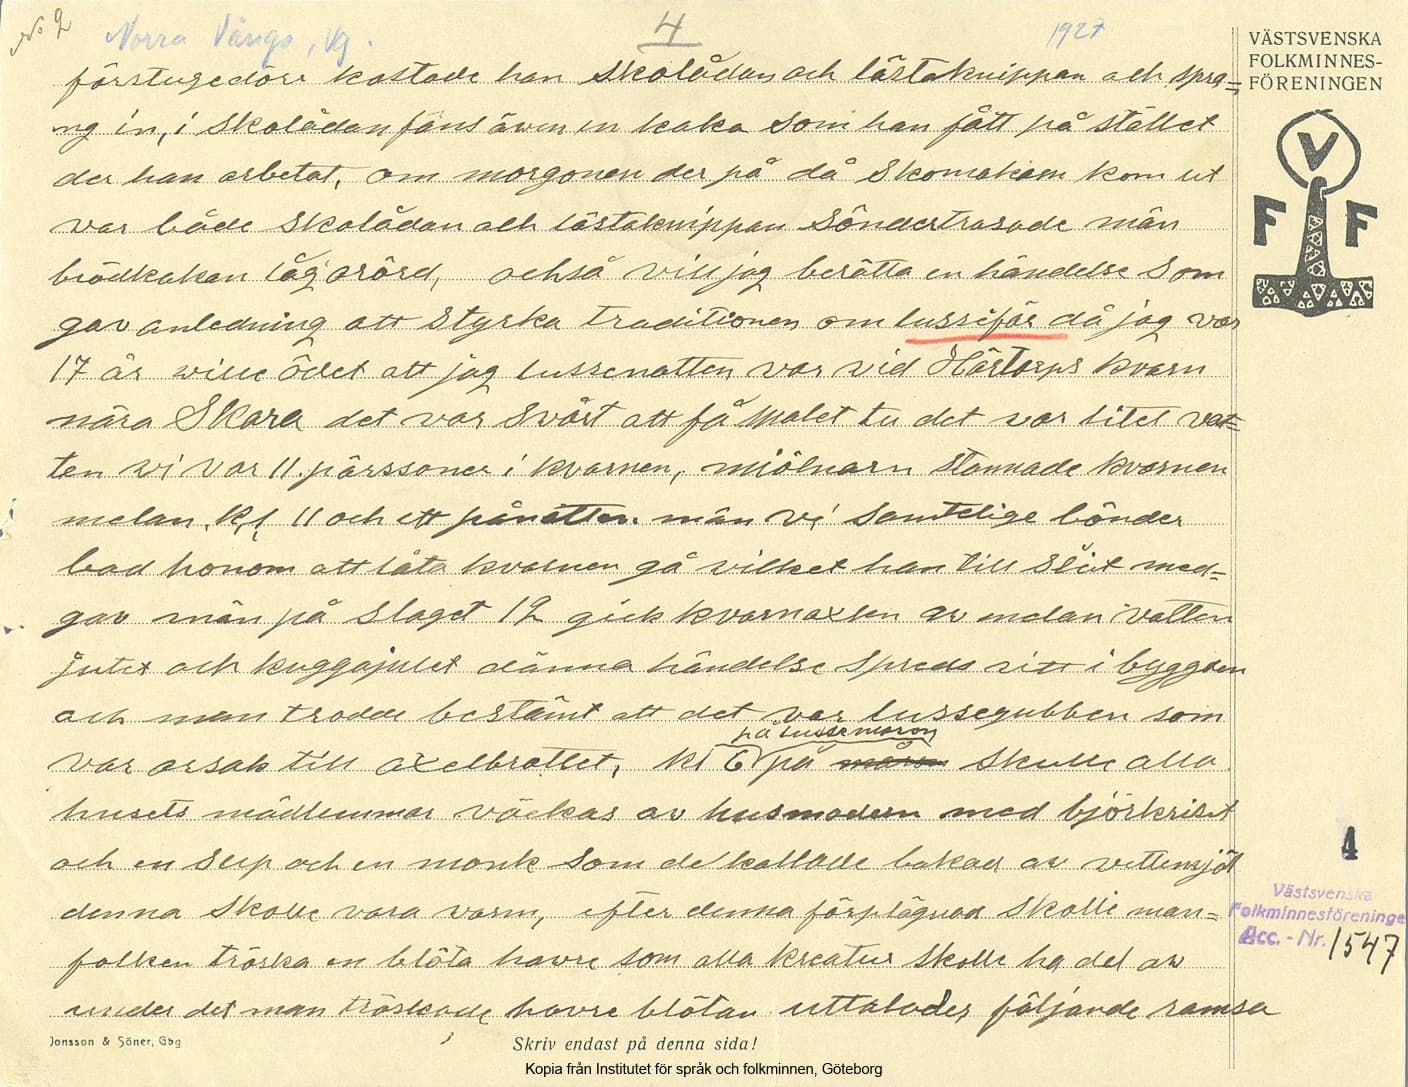 No 2
Norra Vånga, Vg.
4
1927
VÄSTSVENSKA
FOLKMINNES-
FÖRENINGEN
V
F F
förstugedörr kastade han skolådan och lästaknippan och spra=
ng in, i skolådan fans även en kaka som han fått på stället
der han arbetat, om morgonen der på då skomakarn kom ut
var både skolådan och lästaknippan söndertrasade män
brödkakan låg orörd, också vill jag berätta en händelse som
gav anledning att styrka traditionen om lussifär då jag var
17 år wille ödet att jag lussenatten var vid Härtorps kvarn
nära Skara det var svårt att få malet tu det var litet vat=
ten wi var 11. pärssoner i kvarnen, miölnarn stannade kvarnen
melan kl. 11 och ett på natten. män vi samtelige bönder
bad honom att låta kvarnen gå vilket han till slut med=
gav män på slaget 12 gick kvarnaxlen av melan vatten
julet och kuggajulet dänna händelse spreds vitt i byggden
och man trodde bestämt att det var lussegubben som
var orsak till axelbrottet, kl 6 på lussemoron skulle alla
husets mädlemmar väckas av husmodern med björkriset
och en sup och en monk som de kallade bakad av vettemjöl
denna skolle vara varm, efter denna förplägnad skolle man=
folken tröska en blöta havre som alla kreatur skolle ha del av
under det man tröskade havre blötan uttalades följande ramsa
4
Västsvenska
Folkminnesföreninge
Acc. - Nr. 1547
Jonsson & Söner, Gbg
Skriv endast på denna sida!
Kopia från Institutet för språk och folkminnen, Göteborg